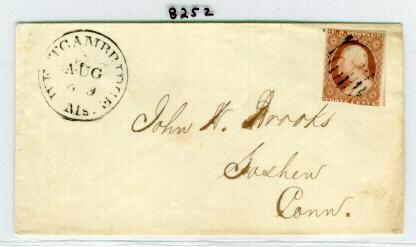 8252
WEST CAMBRIDGE
AUG
9
Ms.
U.S. POSTAGE
THREE CENTS
John W. Brooks
Goshen
Conn.